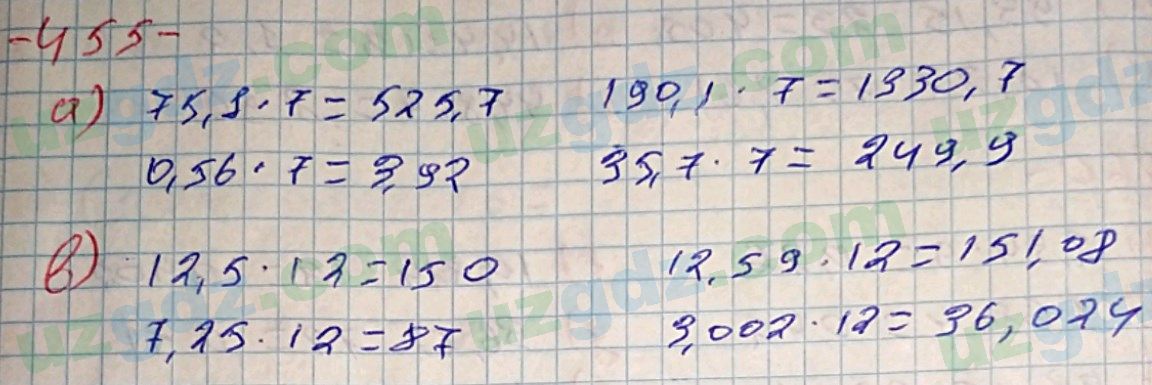 -455-
а) 75,1 · 7 = 525,7 190,1 · 7 = 1330,7
0,56 · 7 = 3,92 35,7 · 7 = 249,9
в) 12,5 · 12 = 150 12,59 · 12 = 151,08
7,25 · 12 = 87 3,002 · 12 = 36,024
uzgdz.com
uzgdz.com
uzgdz.com
uzgdz.com